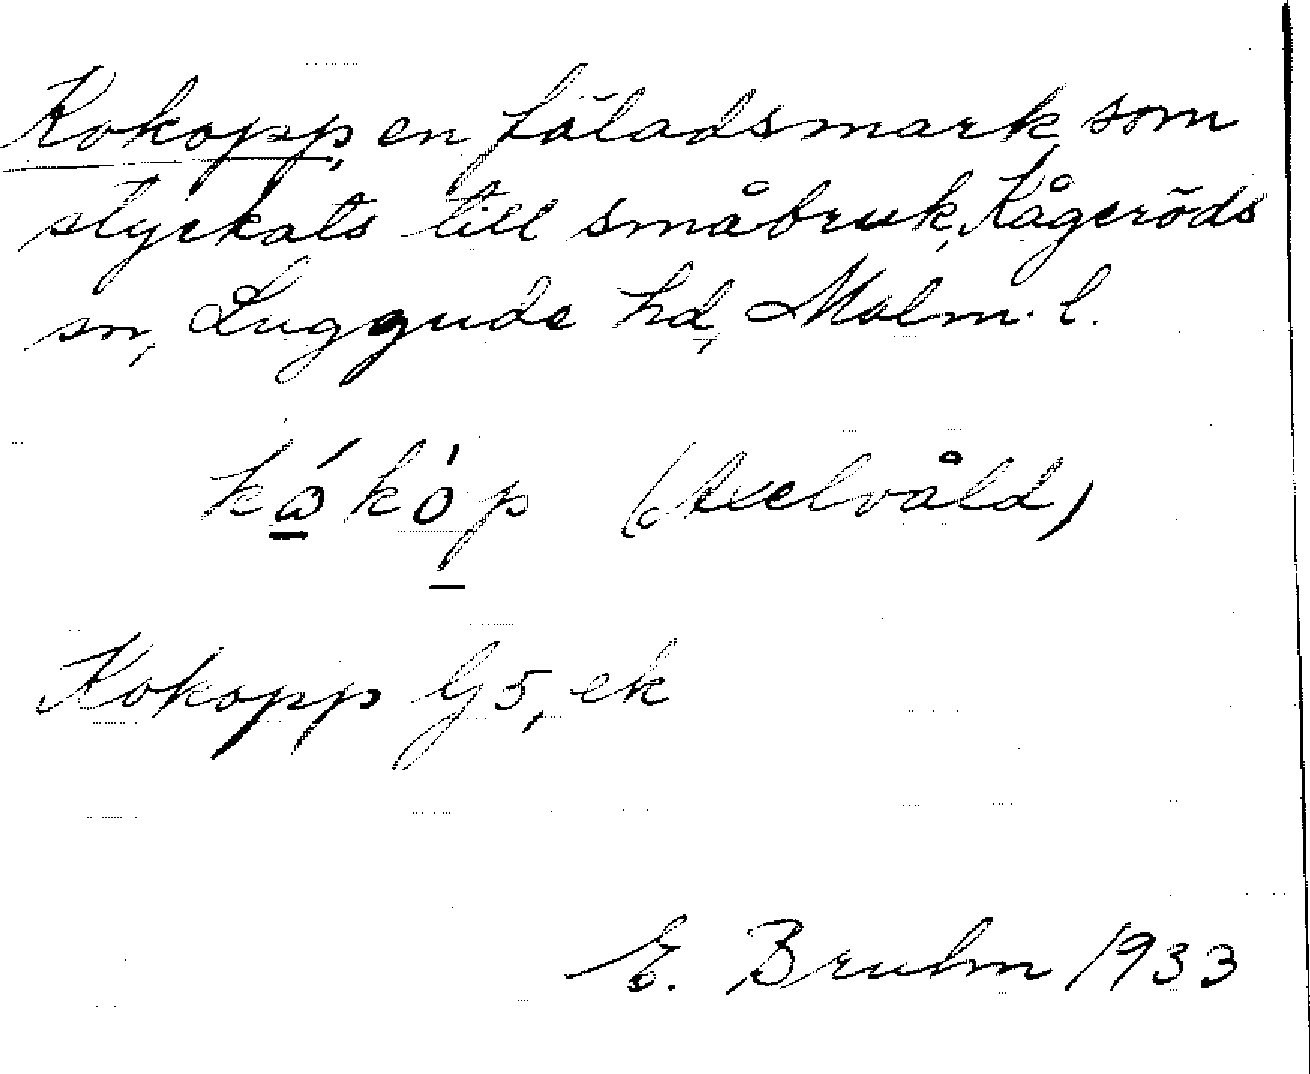 Kokopp, en fäladsmark som
styckats till småbruk, Kågeröds
sn, Luggude hd, Malm. l.
kákóp (Axelvåld)
Kokopp G5, ek
E. Bruhn 1933